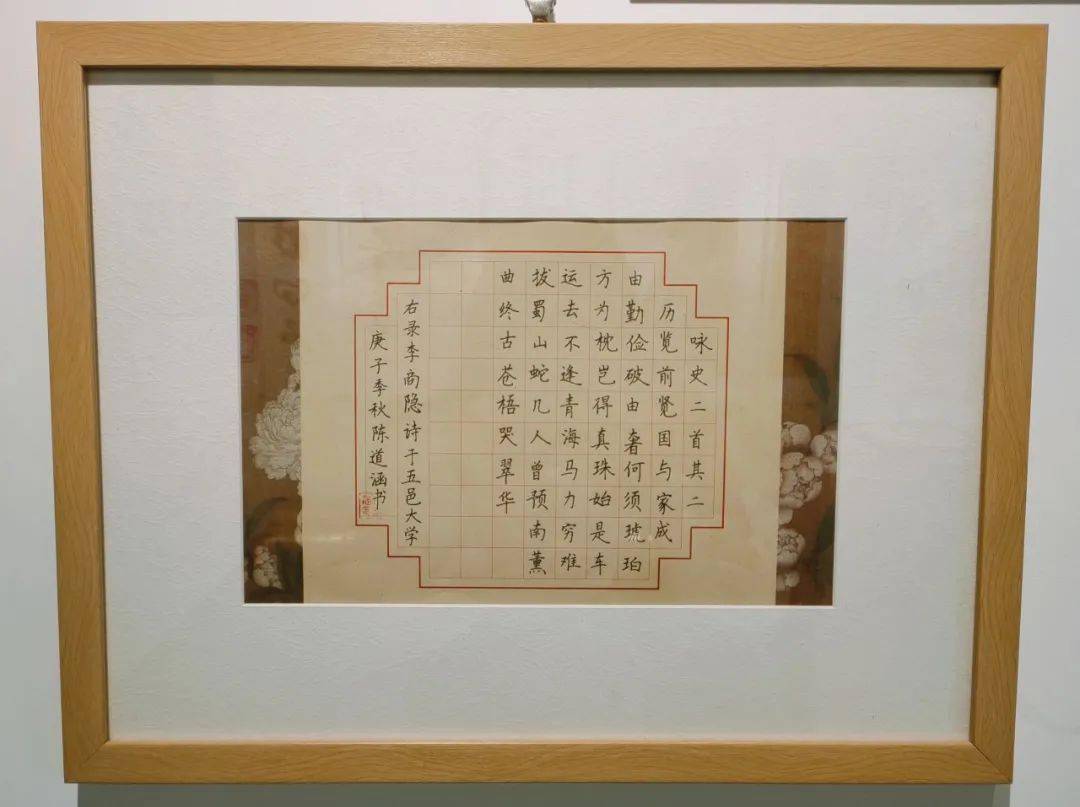 咏史二首其二
历览前贤国与家成
由勤俭破由奢何须琥珀
方为枕岂得真珠始是车
运去不逢青海马力穷难
拔蜀山蛇几人曾预南薰
曲终古苍梧哭翠华
右录李商隐诗于五邑大学
庚子季秋陈道涵书